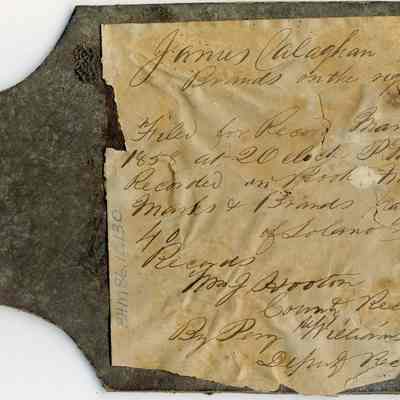 James Calaghan
Brands on the rig
Filed for Record Mar
185 at 2 O clock P.
Recorded in Book
Marks & Brands
40 of Solano
Records
Wm J Hooton
County Rec
By Perry Williams
Deputy Rec